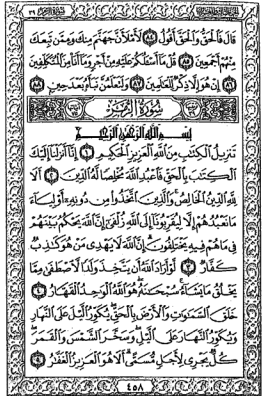 قَالَ فَالْحَقُّ وَالْحَقَّ أَقُولُ ﴿٨٤﴾ لَأَمْلَأَنَّ جَهَنَّمَ مِنكَ وَمِمَّن تَبِعَكَ
مِنْهُمْ أَجْمَعِينَ ﴿٨٥﴾ قُلْ مَا أَسْـَٔلُكُمْ عَلَيْهِ مِنْ أَجْرٍ وَمَا أَنَا مِنَ الْمُتَكَلِّفِينَ
﴿٨٦﴾ إِنْ هُوَ إِلَّا ذِكْرٌ لِّلْعَالَمِينَ ﴿٨٧﴾ وَلَتَعْلَمُنَّ نَبَأَهُ بَعْدَ حِينٍ ﴿٨٨﴾
سُورَةُ الزُّمَرِ
بِسْمِ اللَّهِ الرَّحْمَٰنِ الرَّحِيمِ
تَنزِيلُ الْكِتَٰبِ مِنَ اللَّهِ الْعَزِيزِ الْحَكِيمِ ﴿١﴾ إِنَّا أَنزَلْنَا إِلَيْكَ
الْكِتَٰبَ بِالْحَقِّ فَاعْبُدِ اللَّهَ مُخْلِصًا لَّهُ الدِّينَ ﴿٢﴾ أَلَا
لِلَّهِ الدِّينُ الْخَالِصُ وَالَّذِينَ اتَّخَذُوا مِن دُونِهِ أَوْلِيَاءَ
مَا نَعْبُدُهُمْ إِلَّا لِيُقَرِّبُونَا إِلَى اللَّهِ زُلْفَىٰ إِنَّ اللَّهَ يَحْكُمُ بَيْنَهُمْ
فِي مَا هُمْ فِيهِ يَخْتَلِفُونَ إِنَّ اللَّهَ لَا يَهْدِي مَنْ هُوَ كَٰذِبٌ
كَفَّارٌ ﴿٣﴾ لَّوْ أَرَادَ اللَّهُ أَن يَتَّخِذَ وَلَدًا لَّاصْطَفَىٰ مِمَّا
يَخْلُقُ مَا يَشَاءُ سُبْحَٰنَهُ هُوَ اللَّهُ الْوَٰحِدُ الْقَهَّارُ ﴿٤﴾
خَلَقَ السَّمَٰوَٰتِ وَالْأَرْضَ بِالْحَقِّ يُكَوِّرُ اللَّيْلَ عَلَى النَّهَارِ
وَيُكَوِّرُ النَّهَارَ عَلَى اللَّيْلِ وَسَخَّرَ الشَّمْسَ وَالْقَمَرَ
كُلٌّ يَجْرِي لِأَجَلٍ مُّسَمًّى أَلَا هُوَ الْعَزِيزُ الْغَفَّٰرُ ﴿٥﴾
٤٥٨